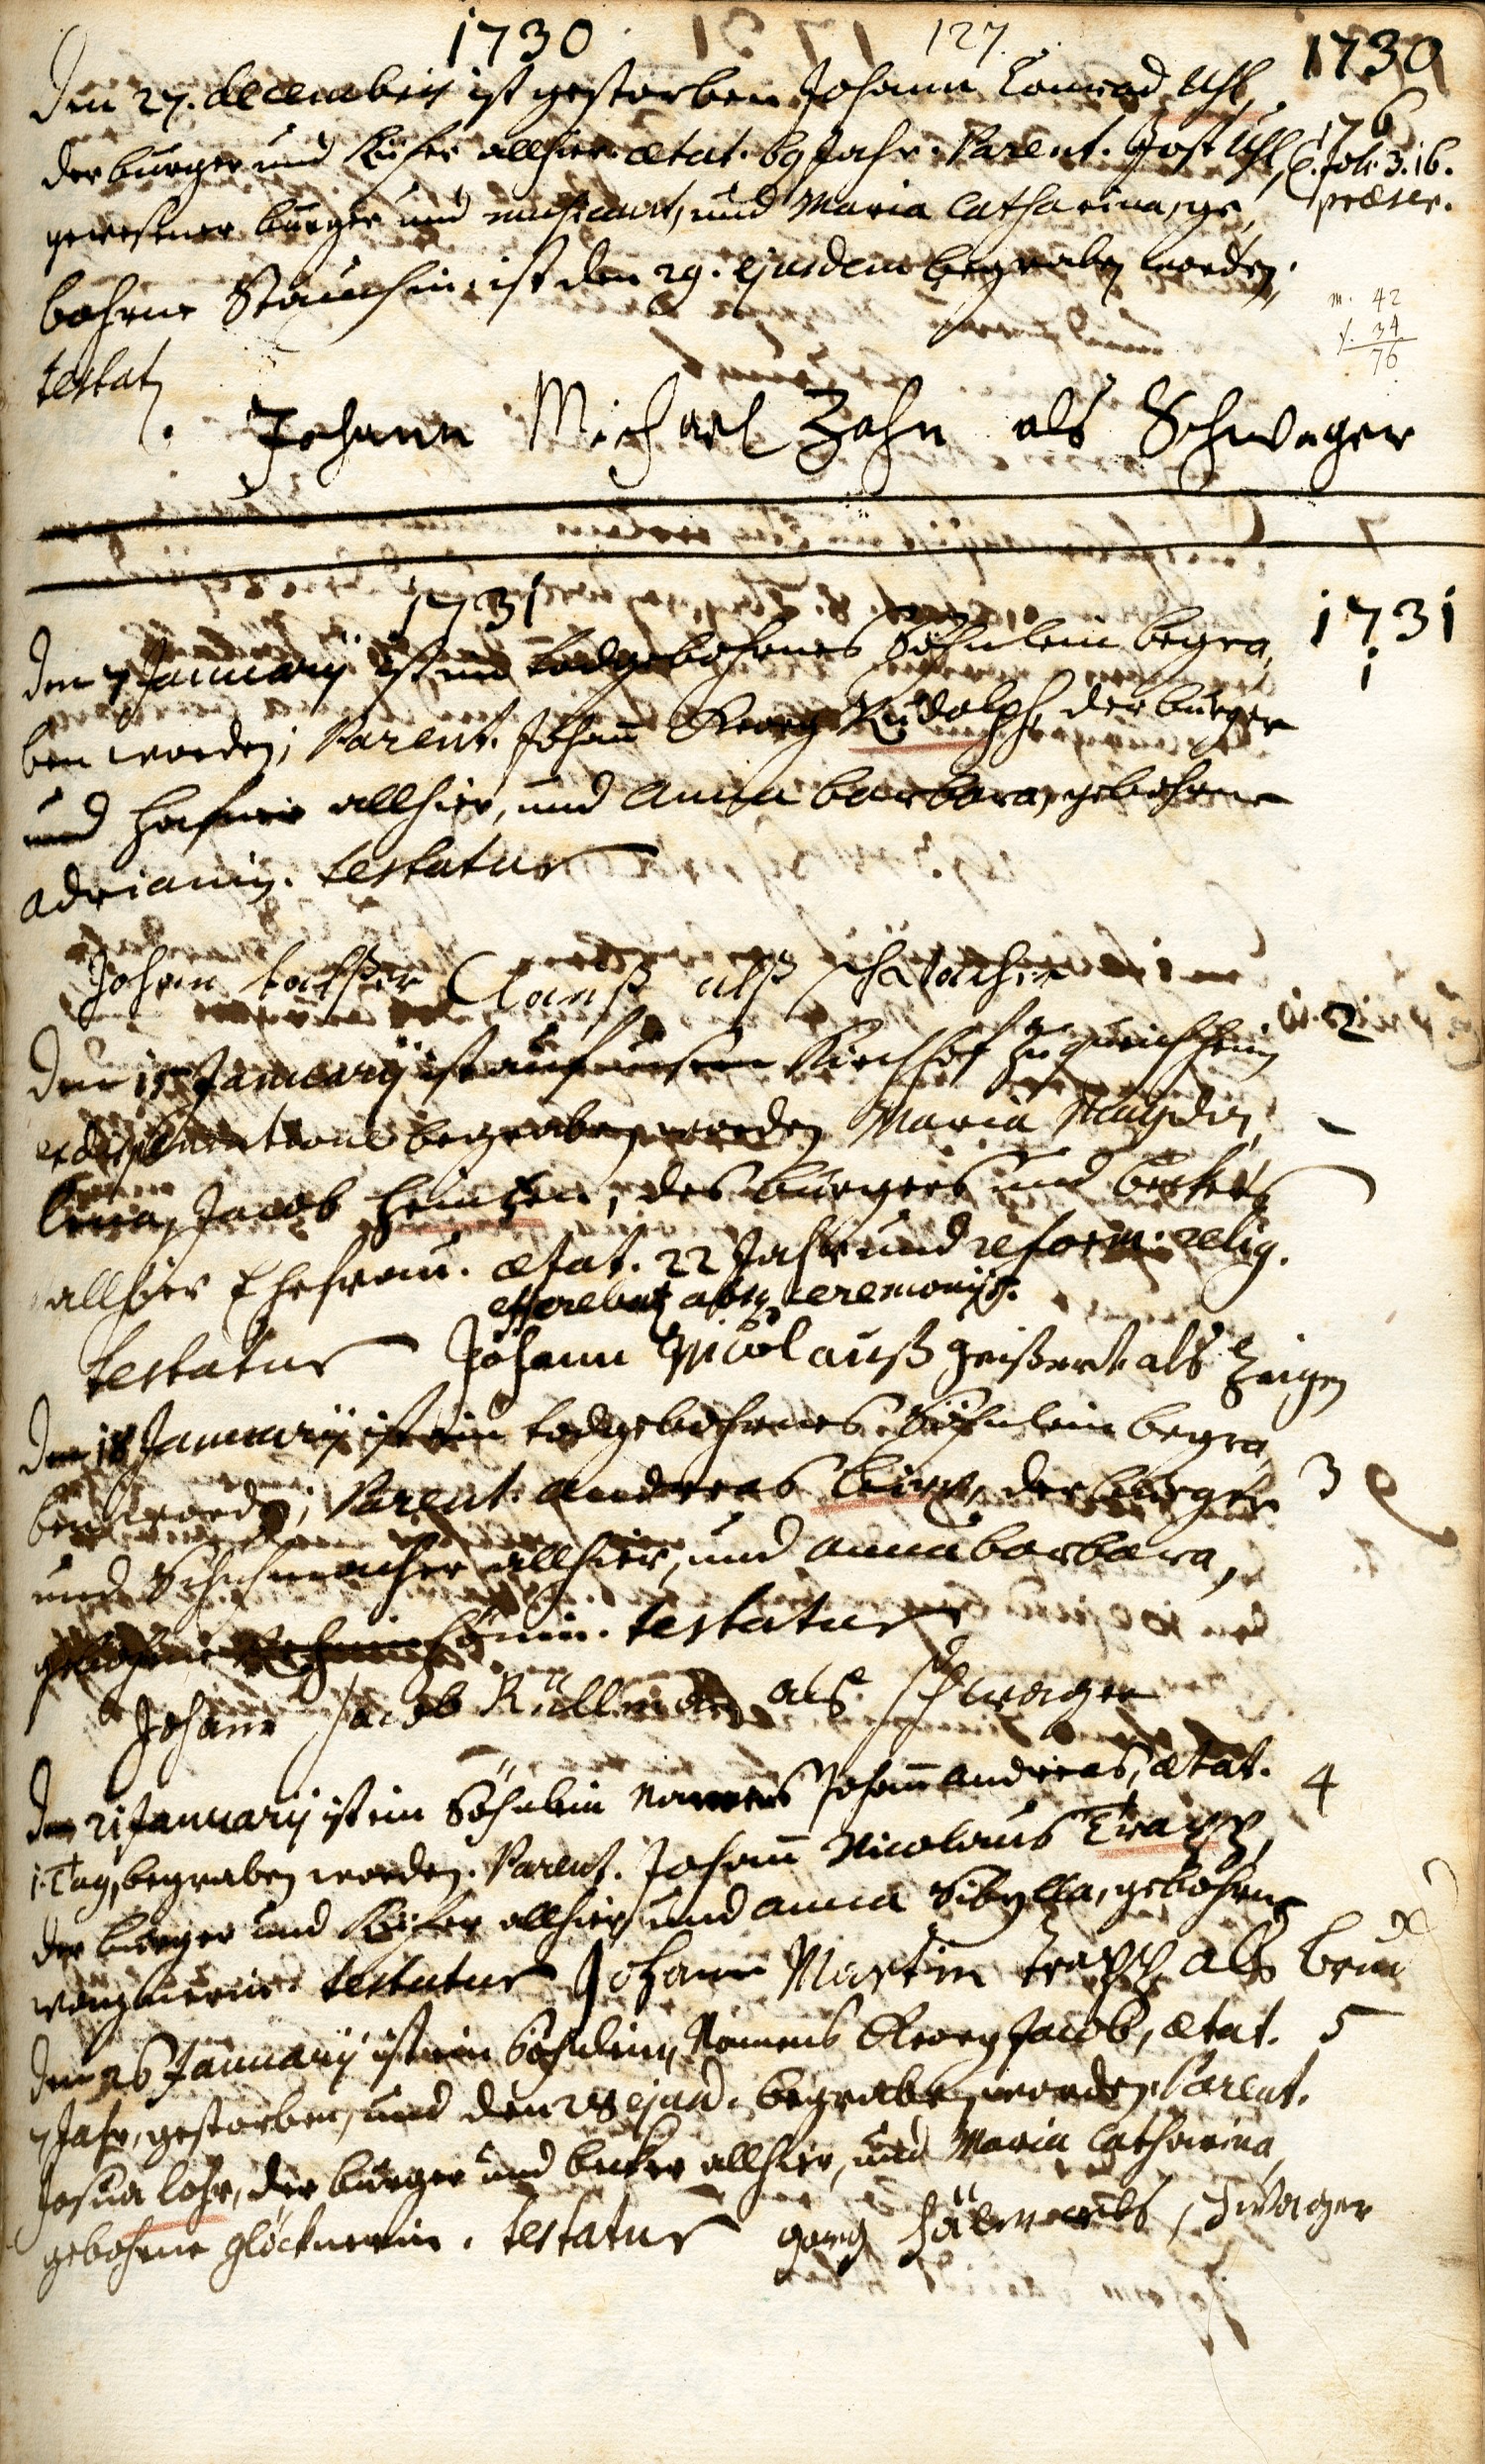 1730 127. 1730
Den 27. decembris ist gestorben Johann Conrad Uhl,
der burger und Küfer allhier. ætat. 69 Jahr. Parent. Jost Uhl, 76
gewesener burger und musicant, und Maria Catharina, ge, C. Joh. 3. 16.
bohrne Stauchin, ist den 29. ejusdem begraben worden. præter.
testat m. 42
f. 34
76
Johann Michael Zahn als Schwager
1731 1731
Den 7 Januarij ist ein todgebohrnes Söhnlein begra, 1
ben worden; Parent. Johañ Georg Rudolph, der burger
und Hafner allhier, und Anna barbara, gebohrne
Adrianin. testatur
Johan Clauß alß
Den 15 Januarij ist auf unsern Kirchhof zu 2
ex dispensatione begraben worden Maria Magda,
lena, Jacob Heintzen, des burgers und beckers
allhier Ehefrau. ætat. 22 Jahr und reform. relig.
efferebat absq ceremonijs.
testatur Johann Nicolauß Geißert als Zeigen
Den 18 Januarij ist ein todgebohrnes Söhnlein begra,
ben word; Parent. Andreas, der burger 3
und Schuhmacher allhier, und Anna barbara,
gebohrne testatur
Johann Jacob Rullman als schwager
Den 21 Januarij ist ein Söhnlein Namens Johañ Andreas, ætat. 4
1. Tag, begraben worden. Parent. Johañ Nicolaus Trapp,
der burger und Küfer allhier, und Anna Sibylla, gebohrne
Wagnerin. testatur Johann Martin Trapp als brud
Den 26 Januarij ist ein Söhnlein, Namens Georg Jacob, ætat. 5
7 Jahr, gestorben, und den 28 ejusd. begraben worden. Parent.
Josua Lohr, der burger und becker allhier, und Maria Catharina,
gebohrne Glöcknerin. testatur schwager